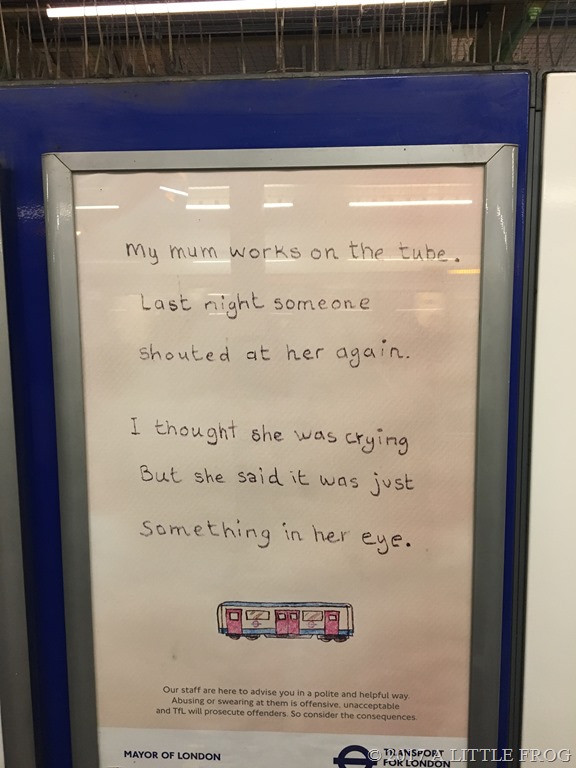 My mum works on the tube.
Last night someone
shouted at her again.
I thought she was crying
But she said it was just
something in her eye.
Our staff are here to advise you in a polite and helpful way.
Abusing or swearing at them is offensive, unacceptable
and TfL will prosecute offenders. So consider the consequences.
MAYOR OF LONDON
TRANSPORT
FOR LONDON
LITTLE FROG